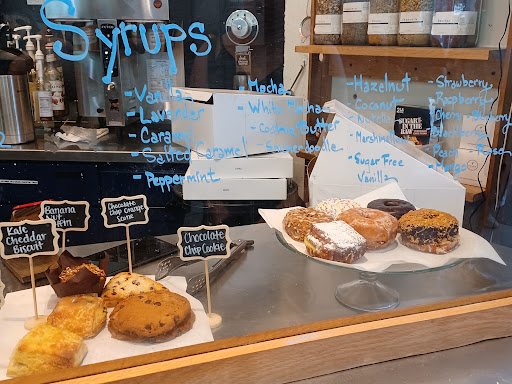 Syrups
- Vanilla
- Lavender
- Caramel
- Salted Caramel
- Peppermint
- Mocha
- White Mocha
- Cookie Butter
- Snickerdoodle
- Hazelnut
- Coconut
- Marshmallow
- Sugar Free
- Vanilla
- Strawberry
- Raspberry
- Cherry
- Blackberry
- Mango
SUGAR
IN THE
RAW
Kale
Cheddar
Biscuit
Banana
Nut
Chocolate
Chip Orange
Scone
Chocolate
Chip Cookie